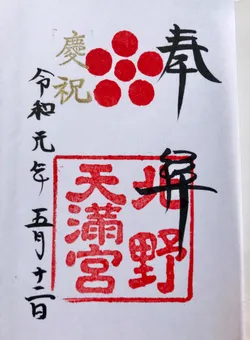 奉拝
北野
天満宮
慶祝
令和元年五月十二日